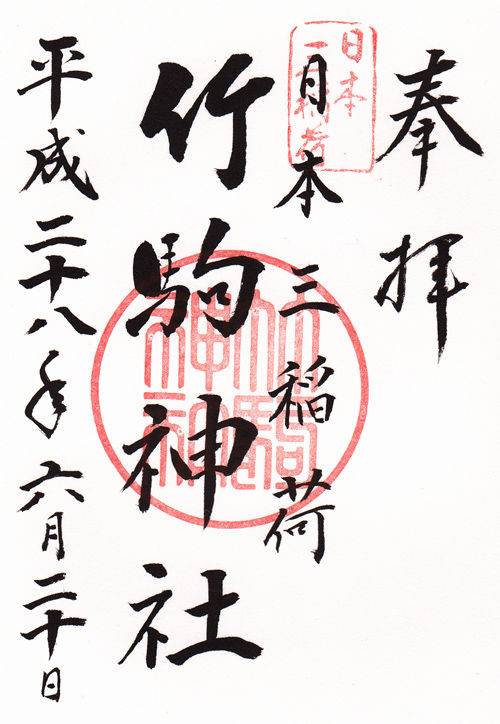 奉拝
日本三稲荷
日本
三稲荷
竹駒神社
竹駒
神社
平成二十八年六月二十日